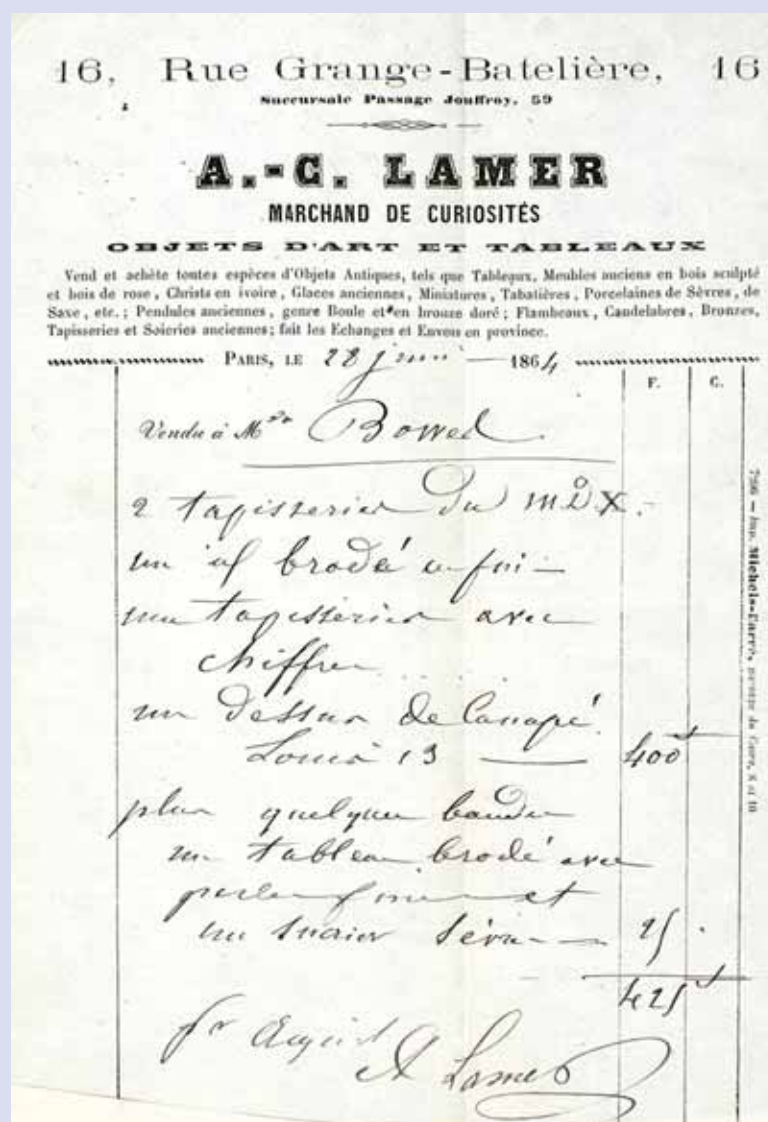 16, Rue Grange-Batelière, 16
Succursale Passage Jouffroy, 59
A.-C. LAMER
MARCHAND DE CURIOSITÉS
OBJETS D'ART ET TABLEAUX
Vend et achète toutes espèces d'Objets Antiques, tels que Tableaux, Meubles anciens en bois sculpté
et bois de rose, Christs en ivoire, Glaces anciennes, Miniatures, Tabatières, Porcelaines de Sèvres, de
Saxe, etc.; Pendules anciennes, genre Boule et en bronze doré; Flambeaux, Candelabres, Bronzes,
Tapisseries et Soieries anciennes; fait les Echanges et Envois en province.
PARIS, LE 28 juin 1864
F. C.
Vendu à M
2 tapisseries du
un brodé
une tapisserie avec
chiffre
un dessus de Canapé
Louis 13 400
plus quelques bandes
un tableau brodé avec
perles fines et
un sucrier Sèvres 25
425
pr Acquit
A Lamer
7266 — Imp. Michels-Carré, passage du Caire, 8 et 10